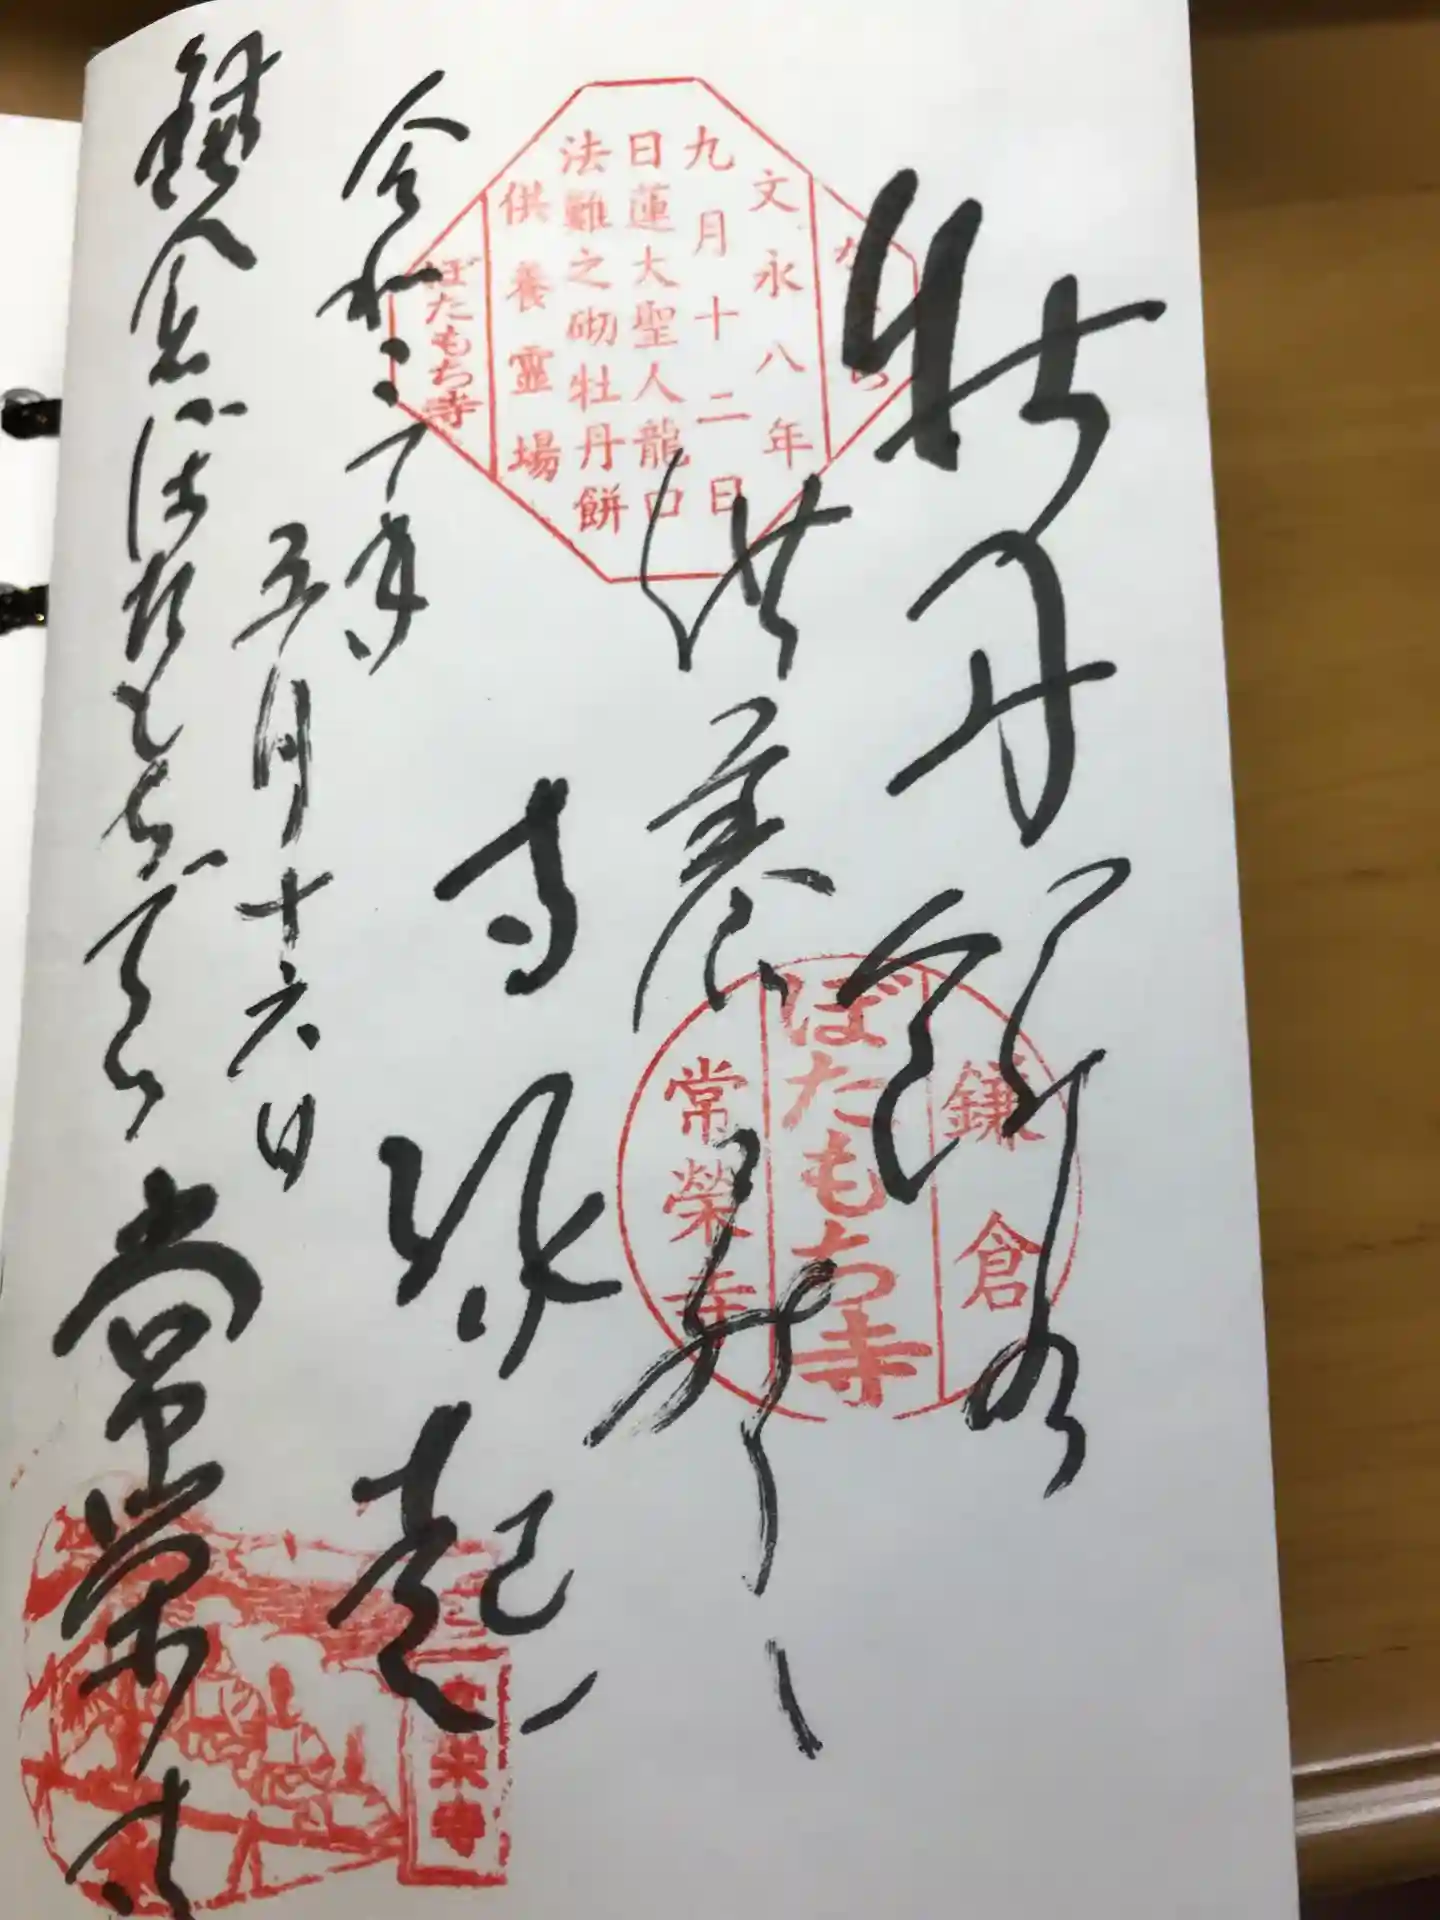 牡丹餅
供養
寺縁起
令和
五月十六日
鎌倉ぼたもちでら 常栄寺
かまくら
文永八年
九月十二日
日蓮大聖人龍口
法難之砌牡丹餅
供養靈場
ぼたもち寺
鎌倉
ぼたもち寺
常榮寺
常栄寺